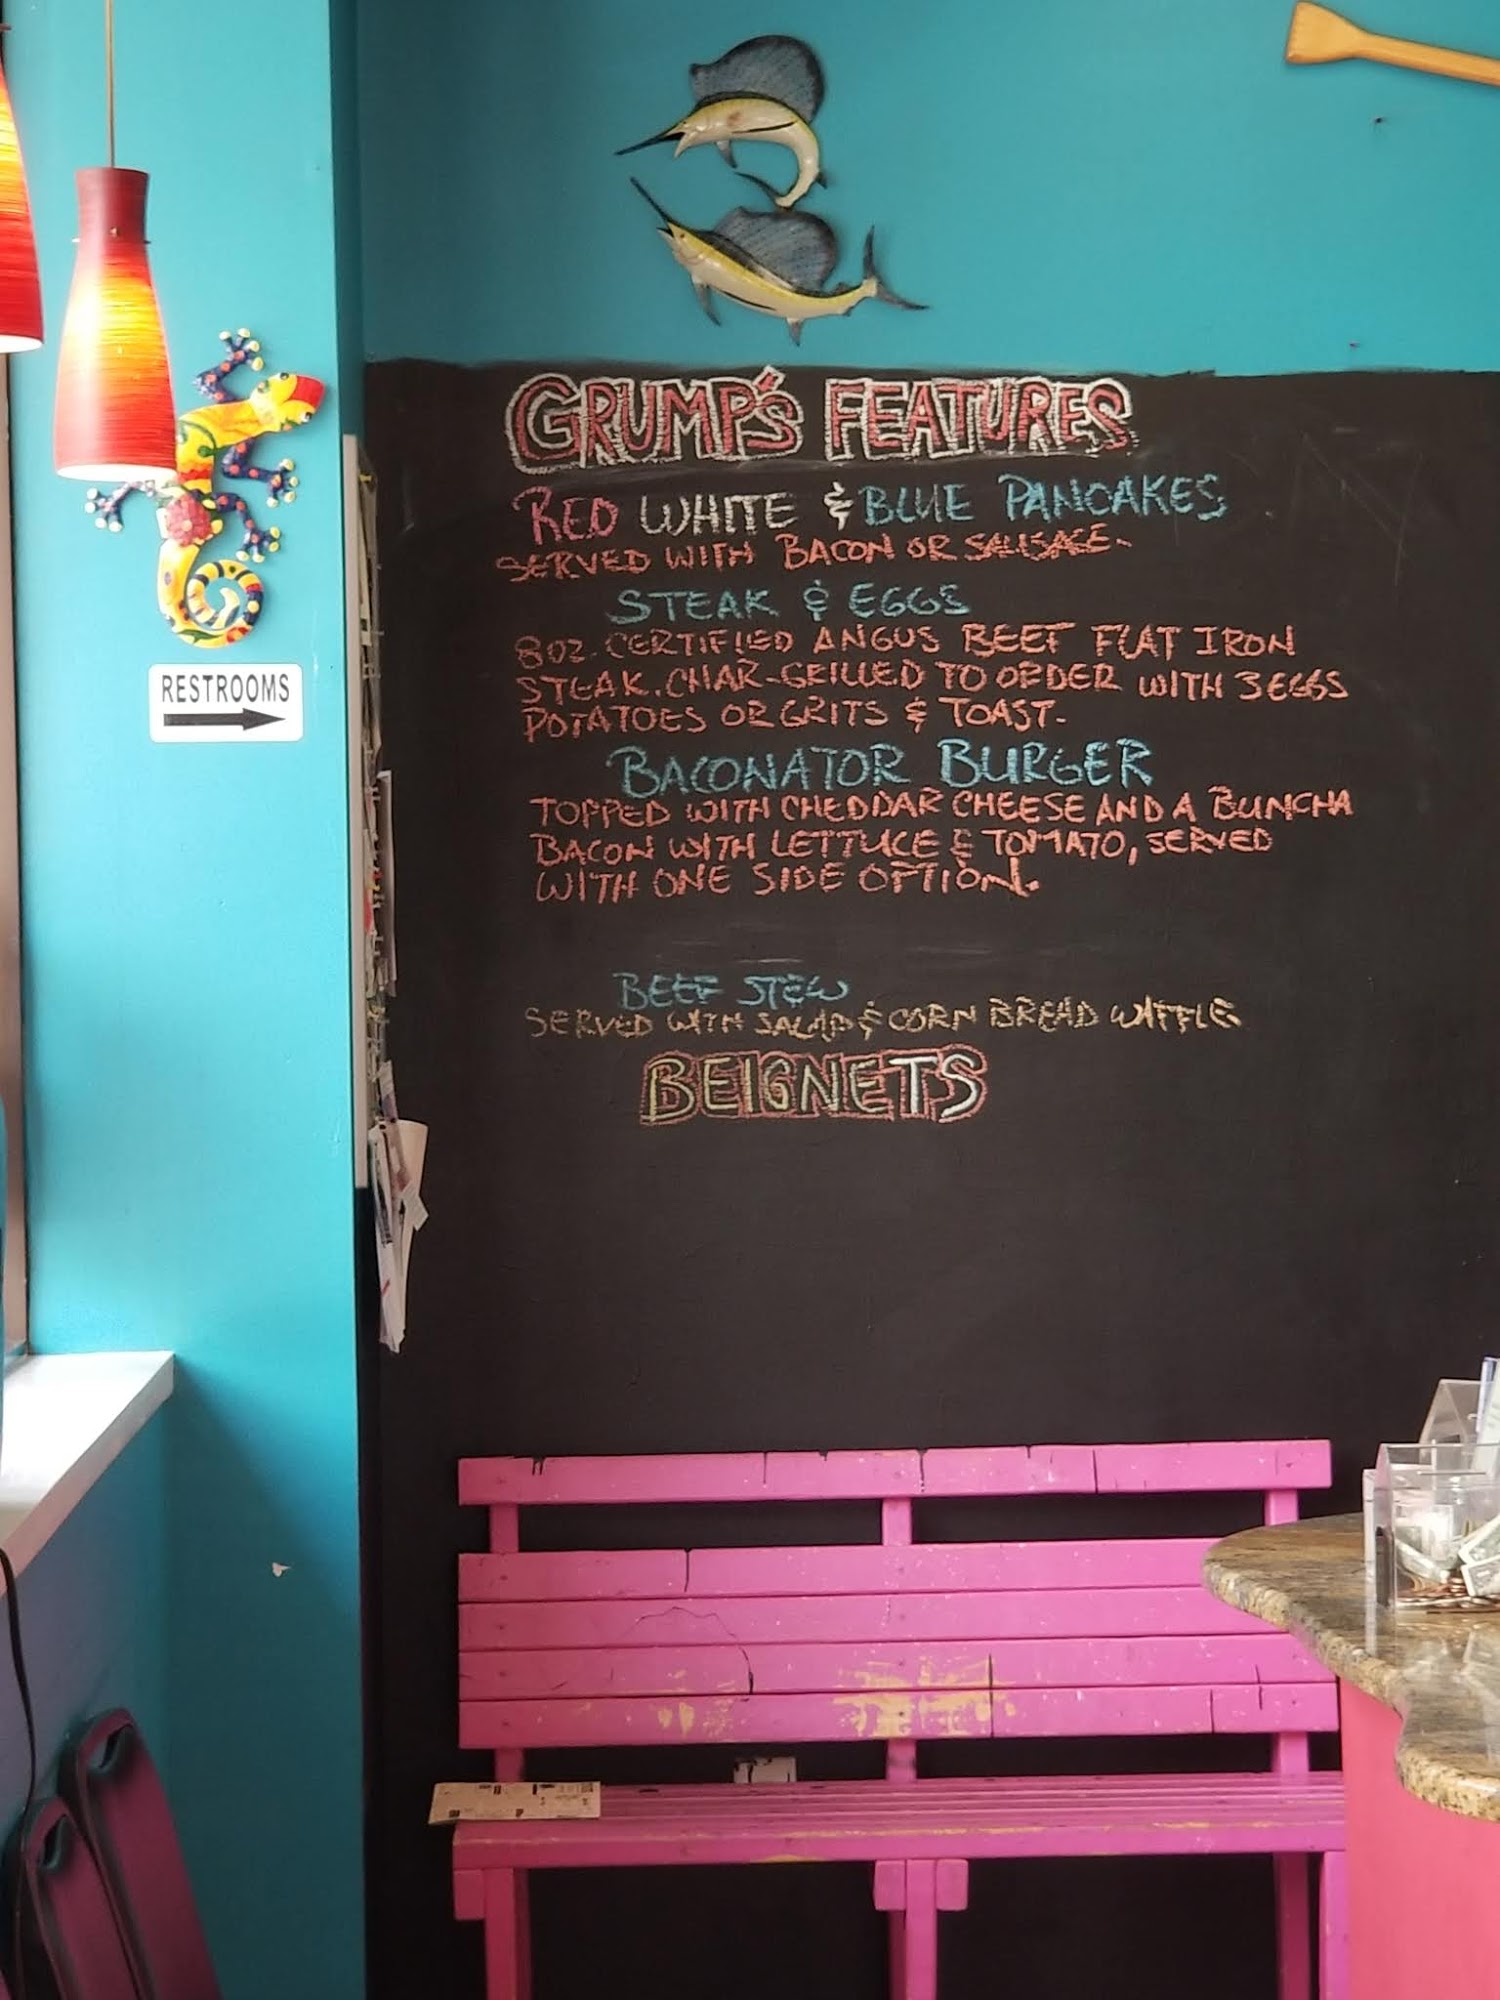 GRUMP'S FEATURES
RED WHITE & BLUE PANCAKES
SERVED WITH BACON OR SAUSAGE.
STEAK & EGGS
8OZ. CERTIFIED ANGUS BEEF FLAT IRON
STEAK. CHAR-GRILLED TO ORDER WITH 3 EGGS
POTATOES OR GRITS & TOAST.
BACONATOR BURGER
TOPPED WITH CHEDDAR CHEESE AND A BUNCHA
BACON WITH LETTUCE & TOMATO, SERVED
WITH ONE SIDE OPTION.
BEEF STEW
SERVED WITH SALAD & CORN BREAD WAFFLE
BEIGNETS
RESTROOMS